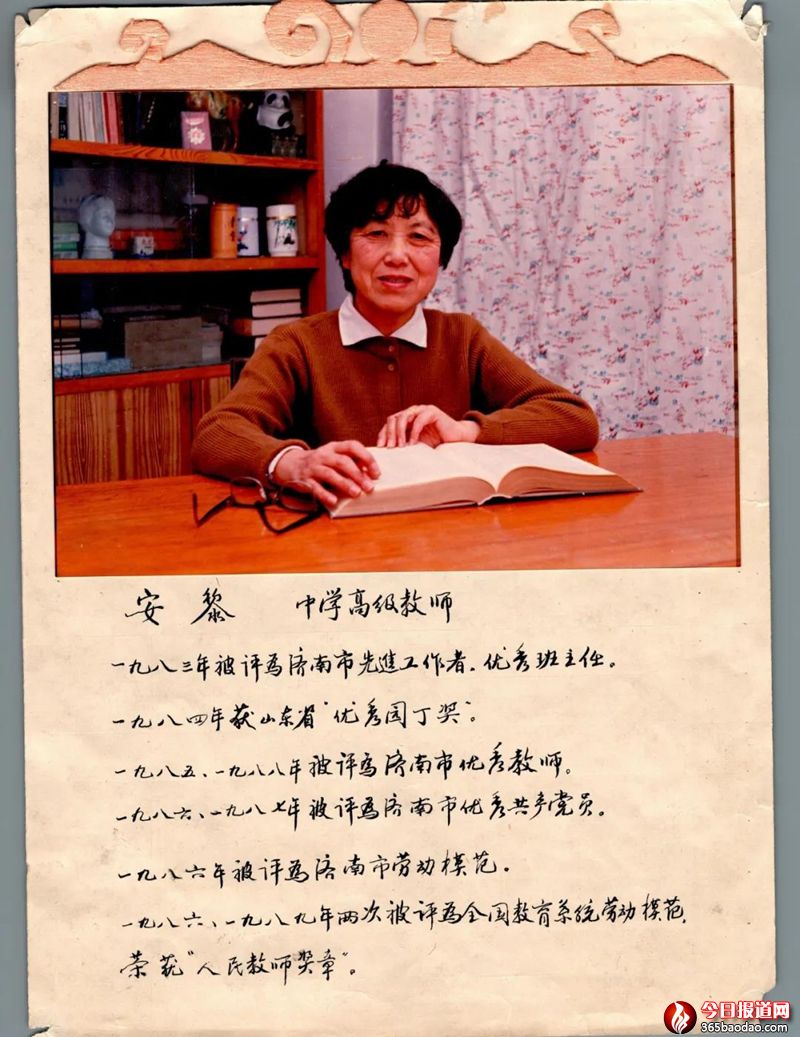 安 黎 中学高级教师
一九八三年被评为济南市先進工作者、优秀班主任。
一九八四年获山东省“优秀园丁奖”。
一九八五、一九八八年被评为济南市优秀教师。
一九八六、一九八七年被评为济南市优秀共产党员。
一九八六年被评为济南市劳动模范。
一九八六、一九八九年两次被评为全国教育系统劳动模范,
荣获“人民教师奖章”。
今日报道网
365baodao.com